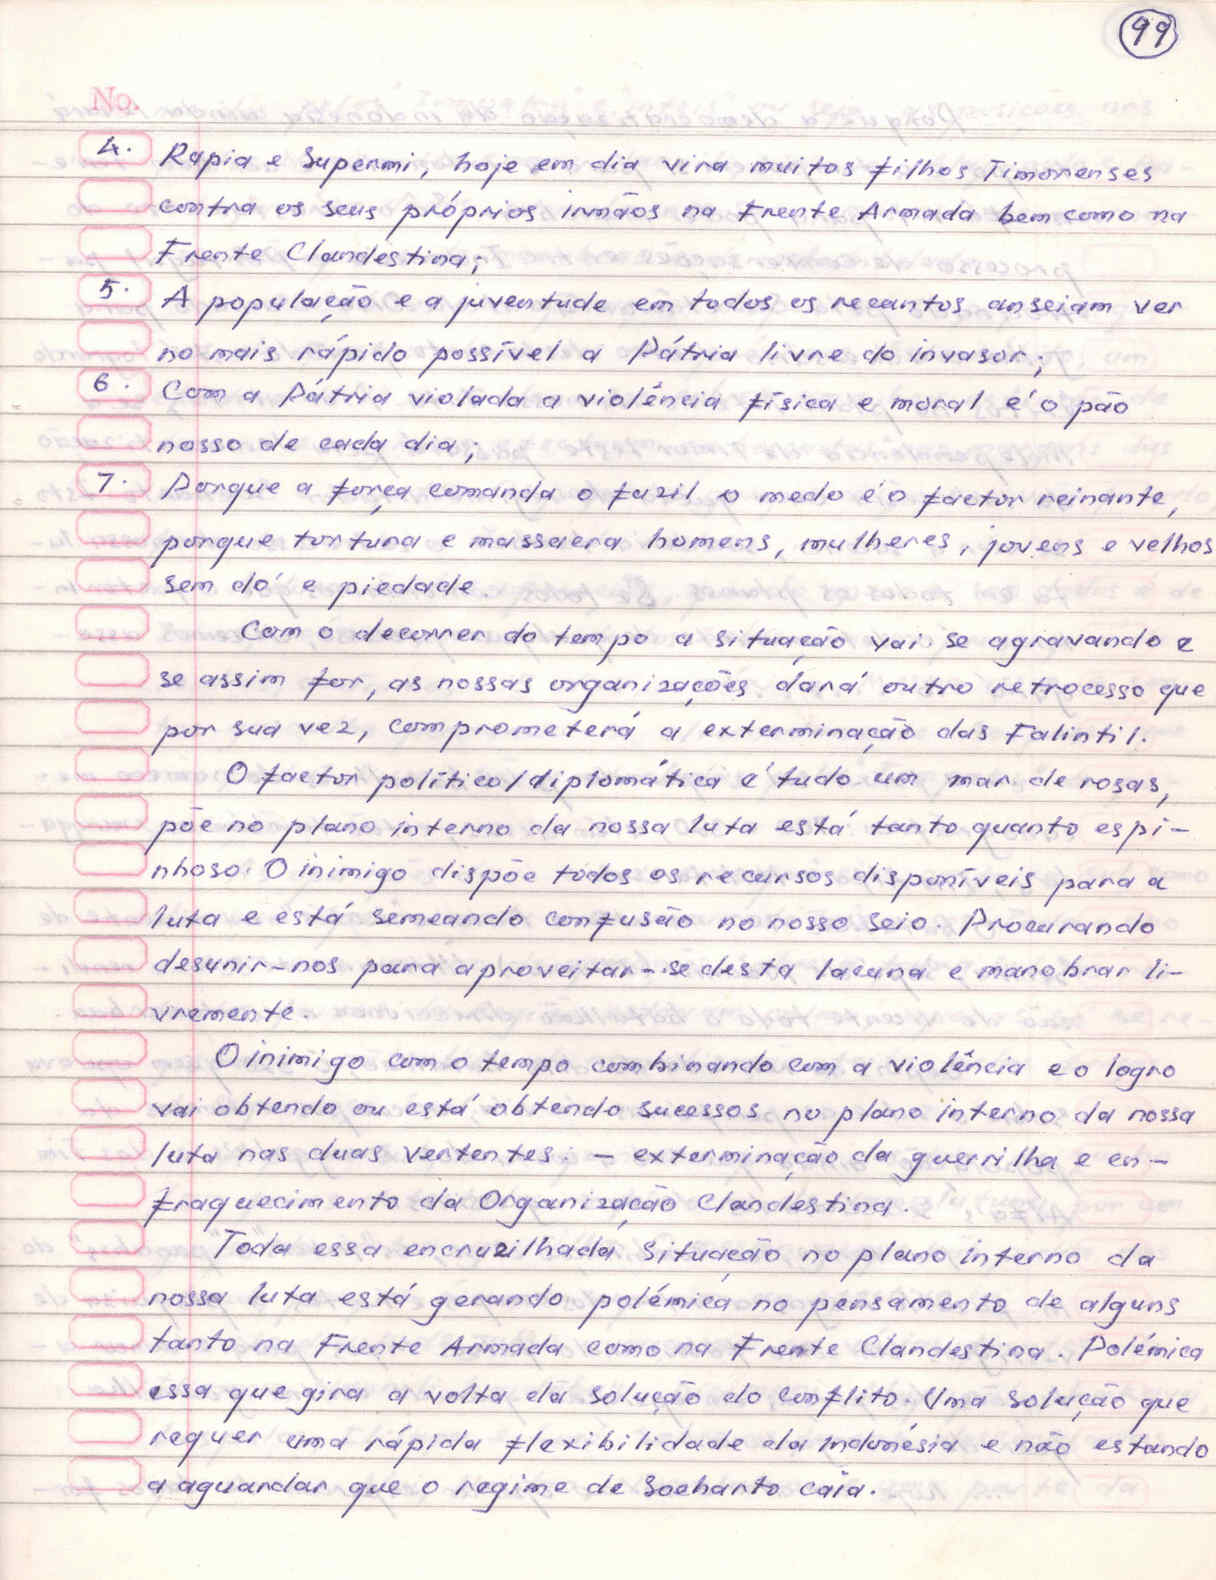 99
No.
4. Rapia e Supermi, hoje em dia vira muitos filhos Timorenses
contra os seus próprios irmãos na Frente Armada bem como na
Frente Clandestina;
5. A população e a juventude em todos os recantos anseiam ver
no mais rápido possível a Pátria livre do invasor;
6. Com a Pátria violada a violência física e moral é o pão
nosso de cada dia;
7. Porque a força comanda o fuzil o medo é o factor reinante,
porque tortura e massacra homens, mulheres, jovens e velhos
sem dó e piedade.
Com o decorrer do tempo a situação vai se agravando e
se assim for, as nossas organizações dará outro retrocesso que
por sua vez, comprometerá a exterminação das Falintil.
O factor político/diplomática é tudo um mar de rosas,
põe no plano interno da nossa luta está tanto quanto espi-
nhoso. O inimigo dispõe todos os recursos disponíveis para a
luta e está semeando confusão no nosso seio. Procurando
desunir-nos para aproveitar-se desta lacuna e manobrar li-
vremente.
O inimigo com o tempo combinando com a violência e o logro
vai obtendo ou está obtendo sucessos no plano interno da nossa
luta nas duas vertentes: - exterminação da guerrilha e en-
fraquecimento da Organização Clandestina.
Toda essa encruzilhada situação no plano interno da
nossa luta está gerando polémica no pensamento de alguns
tanto na Frente Armada como na Frente Clandestina. Polémica
essa que gira a volta da solução do conflito. Uma solução que
requer uma rápida flexibilidade da Indonésia e não estando
a aguardar que o regime de Soeharto caia.